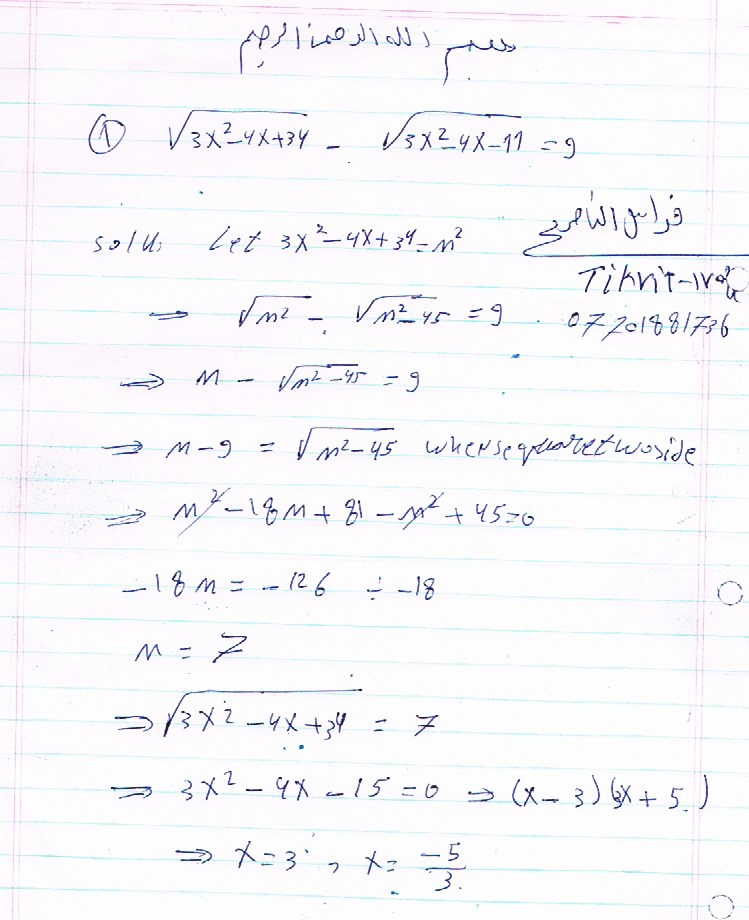 بسم الله الرحمن الرحيم
① √3x²-4x+34 - √3x²-4x-11 = 9
فراس الناصري
Tikrit-Iraq
07701881736
solu: Let 3x²-4x+34=m²
⇒ √m² - √m²-45 = 9
⇒ m - √m²-45 = 9
⇒ m-9 = √m²-45 when sequaret two side
⇒ m²-18m+81-m²+45=0
-18m = -126 ÷ -18
m = 7
⇒ √3x²-4x+34 = 7
⇒ 3x²-4x-15=0 ⇒ (x-3)(3x+5)
⇒ x=3 , x= -5/3